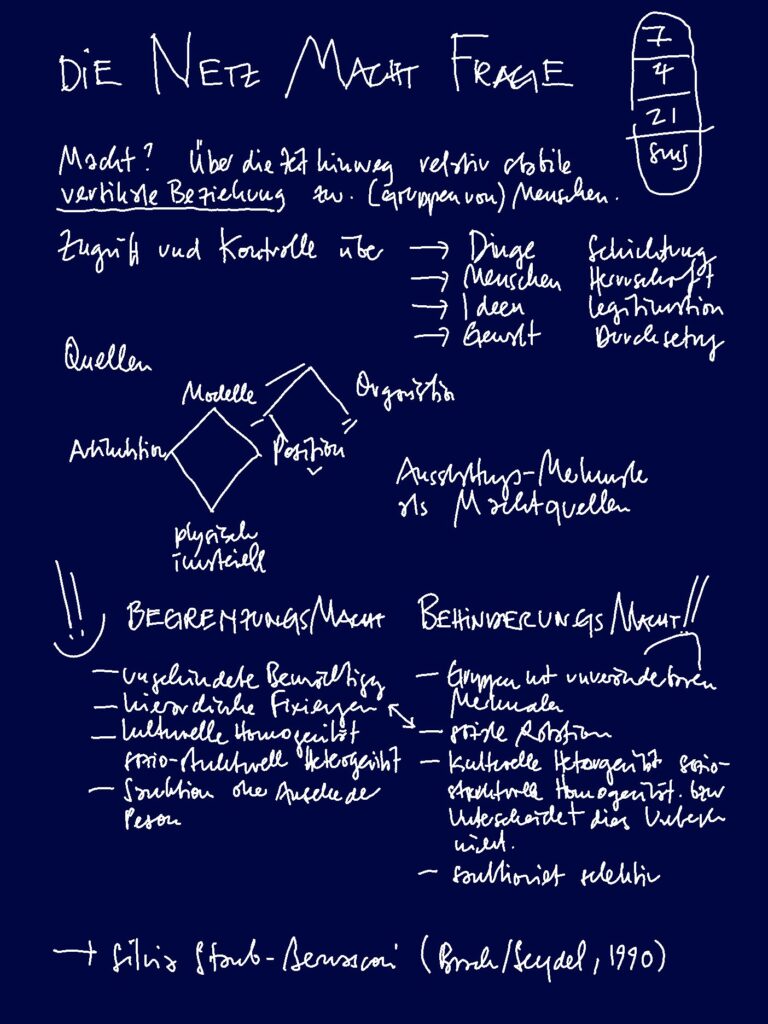 DIE NETZ MACHT FRAGE
7
4
21
smg
Macht? Über die Zeit hinweg relativ stabile
vertikale Beziehung zw. (Gruppen von) Menschen.
Zugriff und Kontrolle über → Dinge Schichtung
→ Menschen Herrschaft
→ Ideen Legitimation
→ Gewalt Durchsetzg
Quellen
Modelle
Organisation
Artikulation
Position
physisch
materiell
Ausstattungs-Merkmale
als Machtquellen
!! BEGRENZUNGSMACHT
– hierarchische Fixiergen
– kulturelle Homogenität
sozio-strukturell Heterogenität
– Sanktion ohne Ansehe der
Person
BEHINDERUNGSMACHT!!
– Gruppen mit unveränderbaren
Merkmalen
– soziale Rotation
– Kulturelle Heterogenität sozio-
strukturelle Homogenität. bzw
Unterscheidet dies
nicht.
– sanktioniert selektiv
→ Silvia Staub-Bernasconi (Brock/Seydel, 1990)